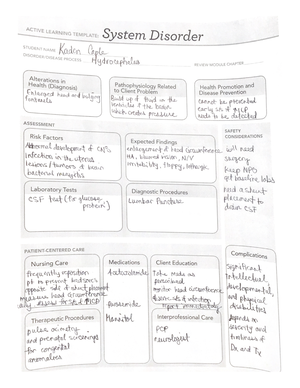 ACTIVE LEARNING TEMPLATE: System Disorder
STUDENT NAME Kaden
DISORDER/DISEASE PROCESS Hydrocephalus
REVIEW MODULE CHAPTER
Alterations in
Health (Diagnosis)
Enlarged head and bulging
fontanels
Pathophysiology Related
to Client Problem
Build up of fluid in the
ventricles of the brain
which creates pressure
Health Promotion and
Disease Prevention
cannot be prevented
early s/s of ↑ICP
needs to be detected
ASSESSMENT
Risk Factors
Abnormal development of CNS
infection in the uterus
lesions/tumors of brain
bacterial meningitis
Expected Findings
enlargement of head circumference
HA, blurred vision, N/V
irritability, sleepy, lethargic
Laboratory Tests
CSF test (for glucose
protein)
Diagnostic Procedures
Lumbar Puncture
SAFETY
CONSIDERATIONS
will need
surgery
keep NPO
get baseline labs
need a shunt
placement to
drain CSF
PATIENT-CENTERED CARE
Nursing Care
frequently reposition
pt to prevent
opposite side of shunt placement
measure head circumference
Medications
Acetazolamide
furosemide
Mannitol
Client Education
Take meds as
prescribed
monitor head circumference
s/s of infection
Therapeutic Procedures
pulse oximetry
and prenatal screenings
for congenital
anomalies
Interprofessional Care
PCP
neurologist
Complications
Significant
intellectual,
developmental,
and physical
disabilities
depends on
severity and
timeliness of
Dx and Tx